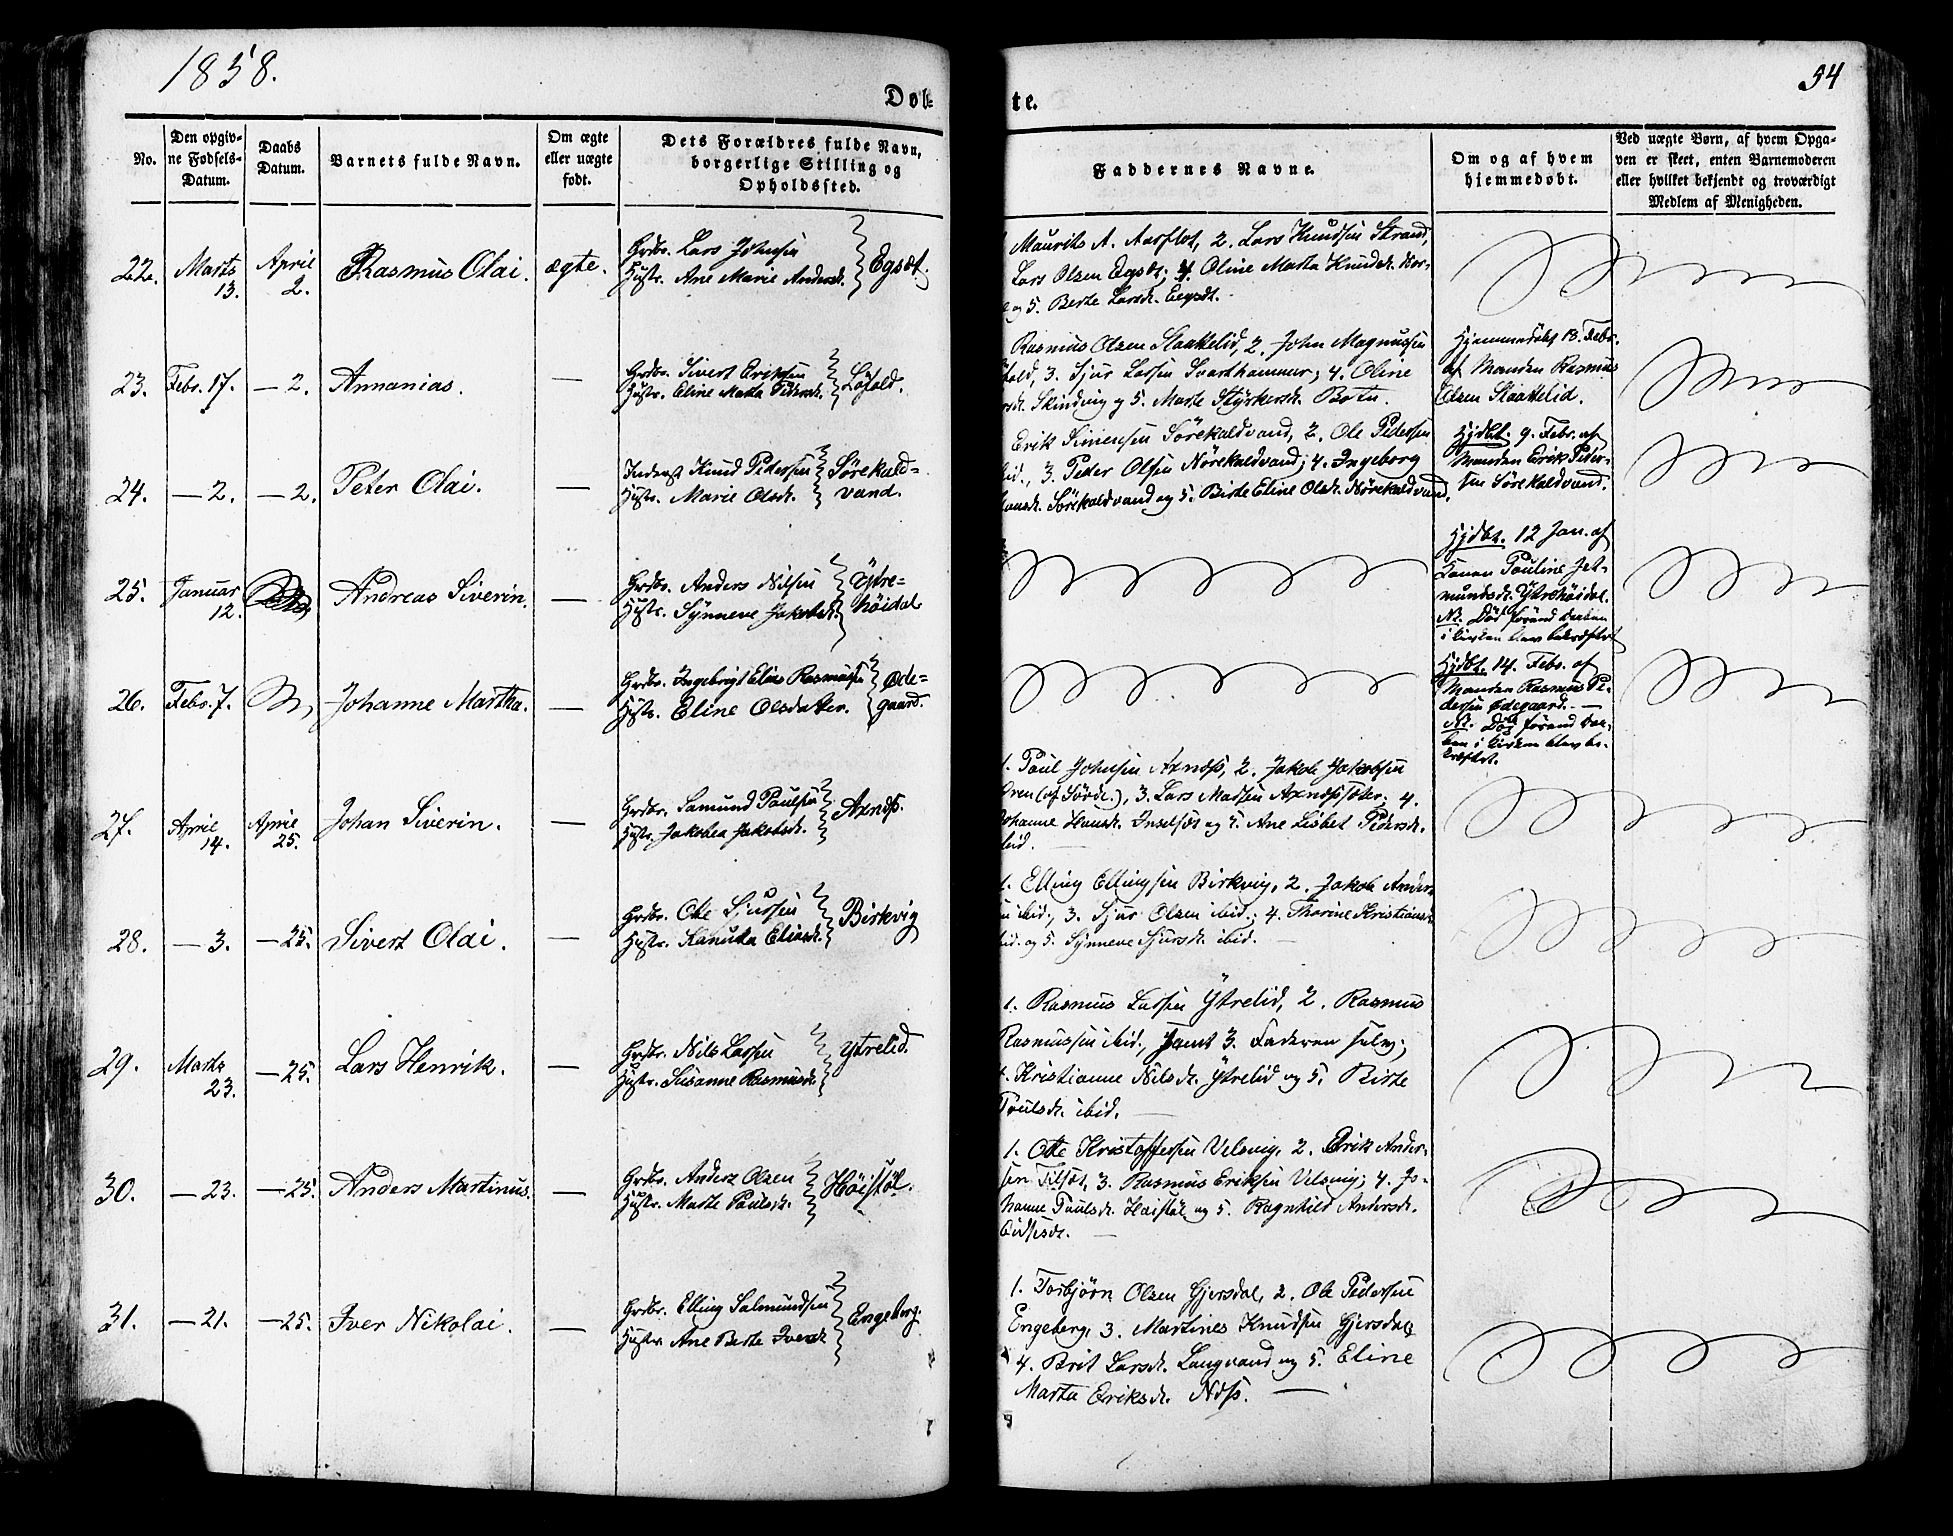 1858.
54
Døb-
te.
No.
Den opgiv-
ne Fødsels-
Datum.
Daabs
Datum.
Barnets fulde Navn.
Om ægte
eller uægte
født.
Dets Forældres fulde Navn,
borgerlige Stilling og
Opholdssted.
Faddernes Navne.
Om og af hvem
hjemmedøbt.
Ved uægte Børn, af hvem Opga-
ven er skeet, enten Barnemoderen
eller hvilket bekjendt og troværdigt
Medlem af Menigheden.
22. Marts 13. April 2. Rasmus Olai. ægte.
Grdbr. Lars Johnsen
Hustr. Ane Marie Andersd. Egsæt.
Maurits A. Aarflot, 2. Lars Knudsen Strand,
Lars Olsen Egsæt; 4. Oline Marta Knudsd.
og 5. Berte Larsd. Egsæt.
23. Febr. 17. — 2. Annanias. —
Grdbr. Sivert Eriksen
Hustr. Eline Marta Pedersd. Løfold.
Rasmus Olsen Slaattelid, 2. John Magnussen
3. Sjur Larsen Svarthammer; 4. Oline
Skindvig og 5. Marte Styrkersd. Botn.
Hjemmedøbt 18. Febr.
af Manden Rasmus
Olsen Slaattelid.
24. — 2. — 2. Peter Olai. —
Inderst Knud Pedersen
Hustr. Marie Olsd. Sørekald-
vand.
Erik Simensen Sørekaldvand, 2. Ole Pedersen
ibid., 3. Peder Olsen Nørekaldvand; 4. Ingeborg
Sørekaldvand og 5. Birte Eline Olsd. Nørekaldvand.
Hjdbt. 9. Febr. af
Manden Erik Peder-
sen Sørekaldvand.
25. Januar 12. Andreas Siverin. —
Grdbr. Anders Nilsen
Hustr. Synneve Jakobsd. Ytre-
høidal.
Hjdbt. 12 Jan. af
Konen Pauline Jet-
mundsd. Ytrehøidal.
NB. Død førend Daaben
i Kirken blev bekræftet.
26. Febr. 7. Johanne Martha. —
Grdbr. Ingebrigt Elias Rasmussen
Hustr. Eline Olsdatter. Øde-
gaard.
Hjdbt. 14. Febr. af
Manden Rasmus Pe-
dersen Ødegaard. —
NB. Død førend Daa-
ben i Kirken blev be-
kræftet.
27. April 14. April 25. Johan Siverin. —
Grdbr. Samund Paulsen
Hustr. Jakobea Jakobsd. Axnæss.
1. Paul Johnsen Axnæss, 2. Jakob Jakobsen
Øren (af Sørde.), 3. Lars Madsen Axnæssæter; 4.
Johanne Hansd. Inselsæt og 5. Ane Lisbet Pedersd.
ibid.
28. — 3. — 25. Sivert Olai. —
Grdbr. Ole Sjursen
Hustr. Kanuta Eliasd. Birkvig
1. Elling Ellingsen Birkvig, 2. Jakob Ander-
sen ibid., 3. Sjur Olsen ibid.; 4. Thorine Kristiansd.
ibid. og 5. Synneve Sjursd. ibid. —
29. Marts 23. — 25. Lars Henrik. —
Grdbr. Nils Larsen
Hustr. Susanne Rasmusd. Ytrelid.
1. Rasmus Larsen Ytrelid, 2. Rasmus
Rasmussen ibid., samt 3. Faderen selv;
4. Kristianne Nilsd. Ytrelid og 5. Birte
Poulsd. ibid. —
30. — 23. — 25. Anders Martinus. —
Grdbr. Anders Olsen
Hustr. Marte Paulsd. Høistøl.
1. Ole Kristoffersen Velsvig, 2. Erik Ander-
sen Tilsæt, 3. Rasmus Eriksen Velsvig; 4. Jo-
hanne Poulsd. Høistøl og 5. Ragnhild Andersd.
31. — 21. — 25. Iver Nikolai. —
Grdbr. Elling Salmundsen
Hustr. Ane Berte Iversd. Engeberg.
1. Torbjørn Olsen Gjersdal, 2. Ole Pedersen
Engeberg, 3. Martines Knudsen Gjersdal;
4. Brit Larsd. Langvand og 5. Eline
Marta Eriksd. Næss. —